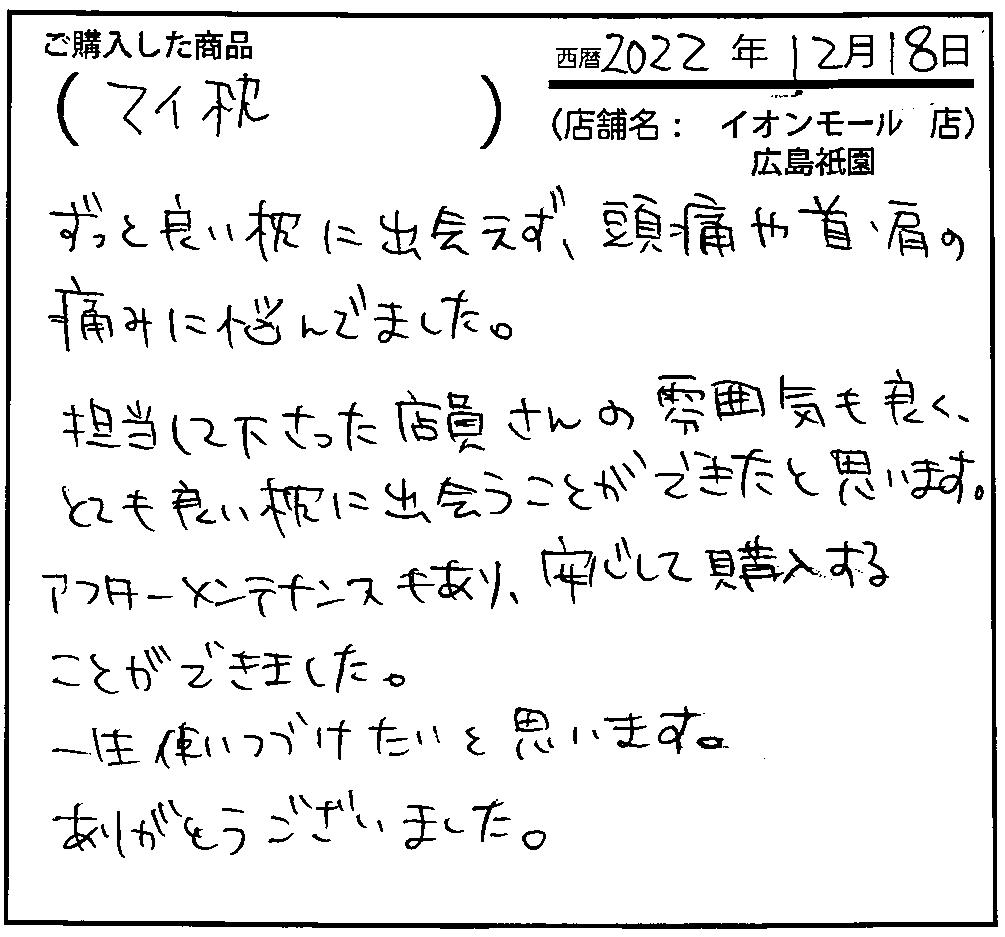 ご購入した商品
(マイ枕)
西暦2022年12月18日
(店舗名： イオンモール 店)
広島祇園
ずっと良い枕に出会えず、頭痛や首・肩の
痛みに悩んでました。
担当して下さった店員さんの雰囲気も良く、
とても良い枕に出会うことができたと思います。
アフターメンテナンスもあり、安心して購入する
ことができました。
一生使いつづけたいと思います。
ありがとうございました。